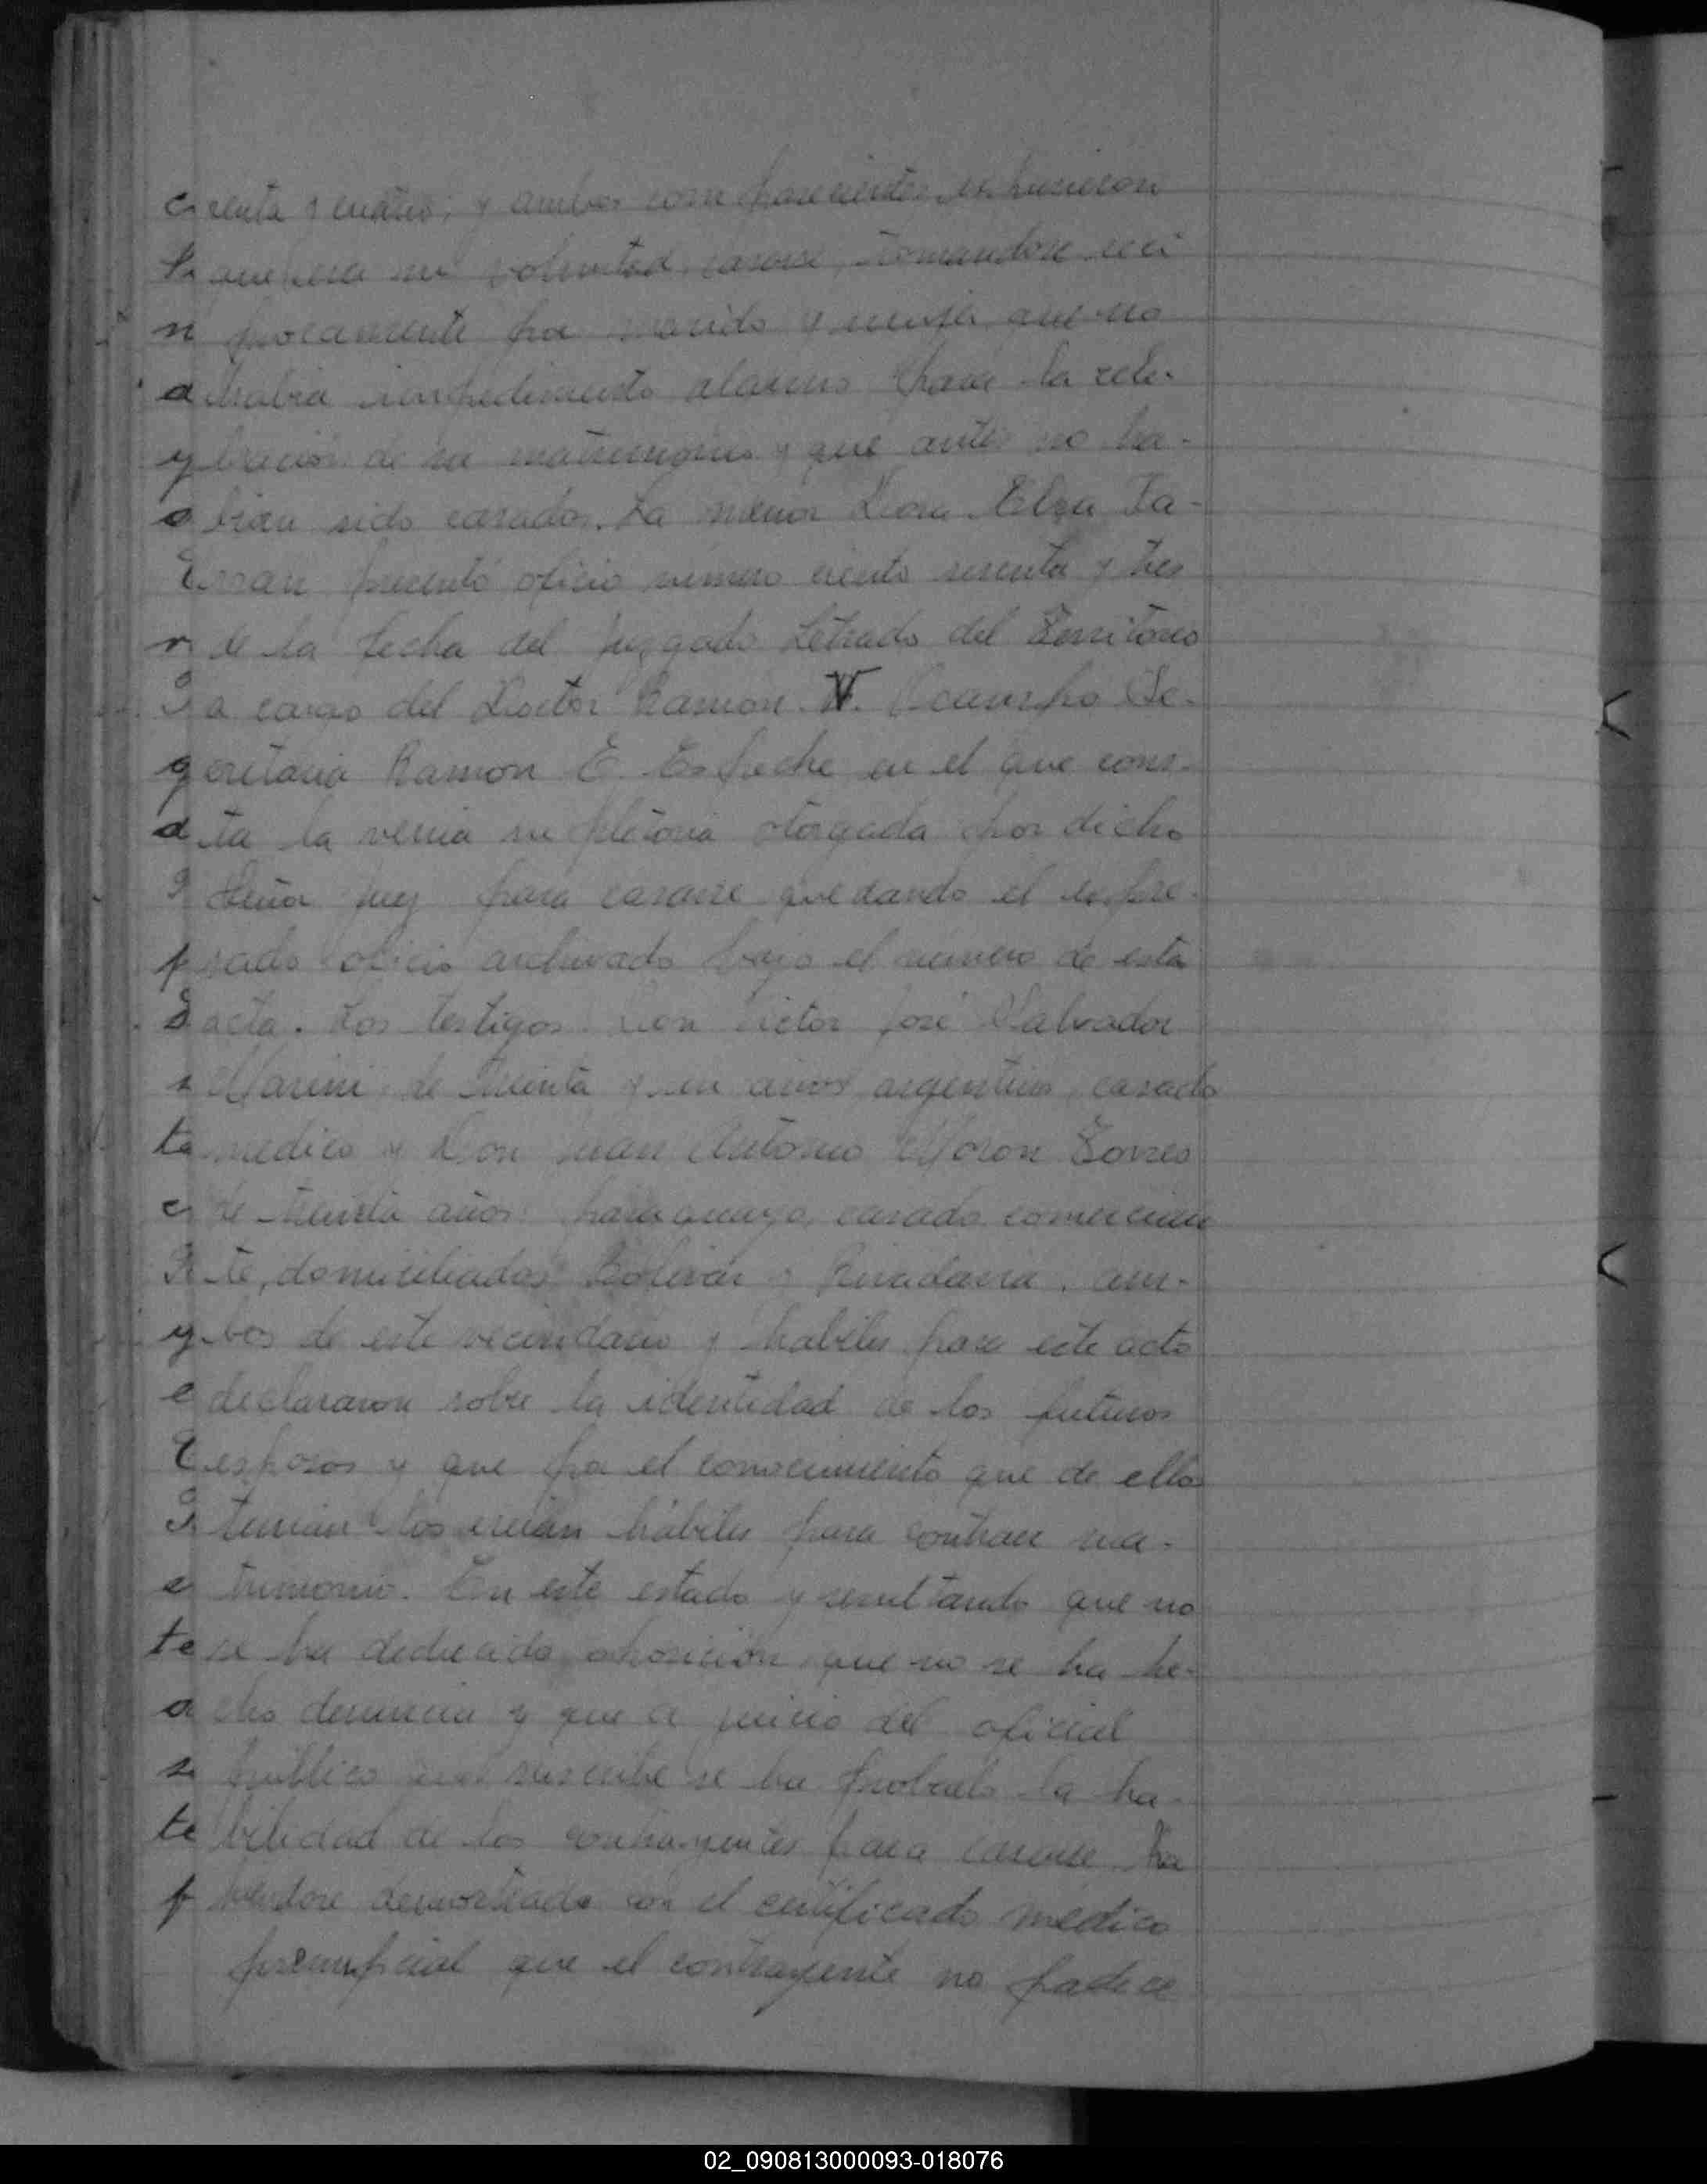 renta y cuatro; y ambos comparecientes expusieron
que era su voluntad casarse, tomandose reci
procamente por marido y mujer, que no
habia impedimento alguno para la cele-
bracion de su matrimonio y que antes no ha-
bian sido casados. La menor Dora Elsa Ta-
presentó oficio número ciento sesenta y tres
de la fecha del Juzgado Letrado del Territorio
a cargo del Doctor Ramon V. Ocampo Se-
cretaria Ramon E. en el que cons-
ta la venia supletoria otorgada por dicho
Señor Juez para casarse quedando el expre-
sado oficio archivado bajo el número de esta
acta. Los testigos Don Victor José Salvador
Marini, de treinta y un años argentino, casado
medico y Don Juan Antonio Moron Torres
de treinta años paraguayo, casado comercian
te, domiciliados Bolivar y Rivadavia, am-
bos de este vecindario y habiles para este acto
declararon sobre la identidad de los futuros
esposos y que por el conocimiento que de ellos
tenian los creian hábiles para contraer ma-
trimonio. En este estado y resultando que no
se ha deducido oposicion, que no se ha he-
cho denuncia y que a juicio del oficial
público que suscribe se ha probado la ha-
bilidad de los contrayentes para casarse, ha
biendose demostrado con el certificado médico
prenupcial que el contrayente no padece
02_090813000093-018076